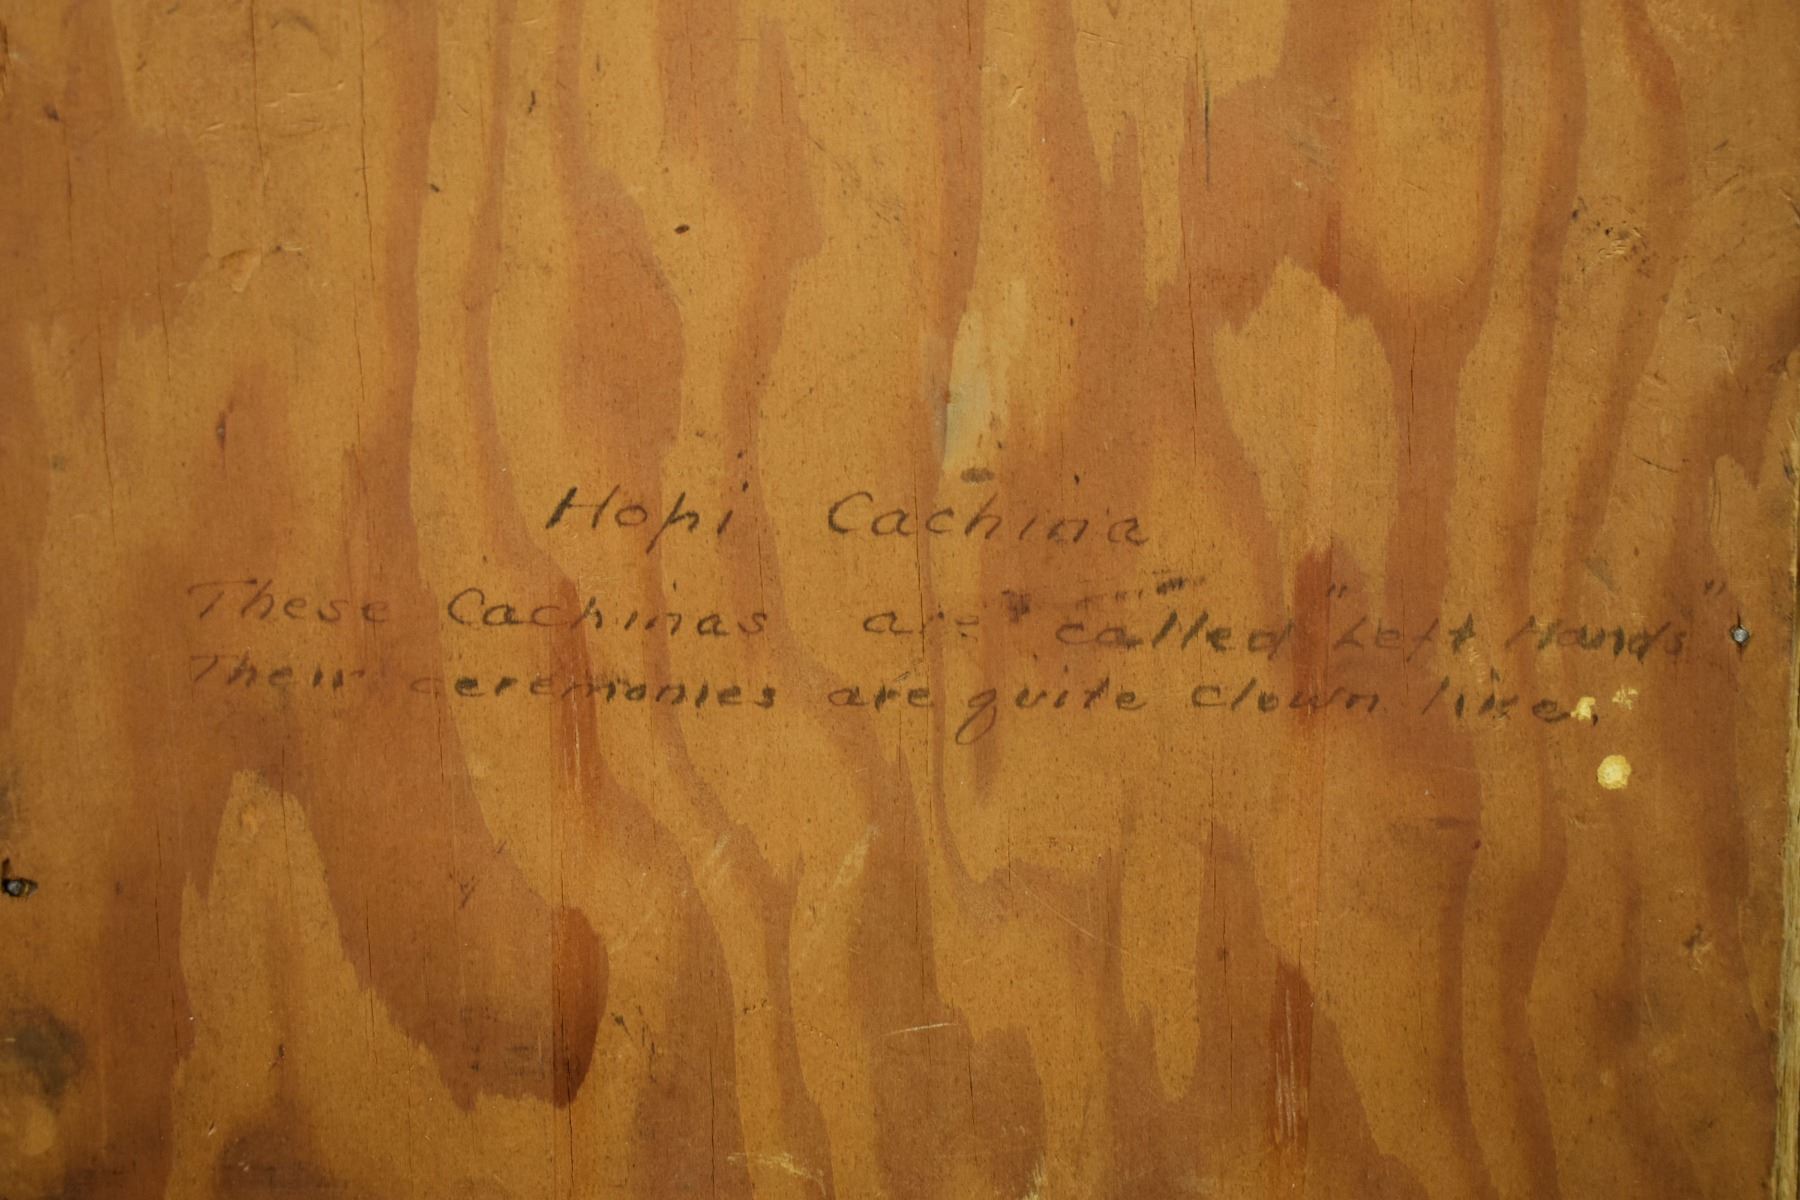 Hopi Cachina
These Cachinas are called "Left Hands"
Their ceremonies are quite clown like.